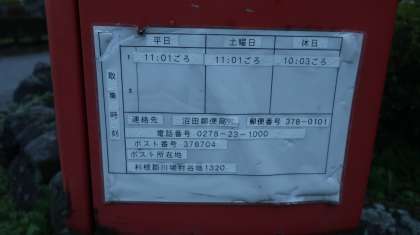 平日 土曜日 休日
取集時刻
1 11:01ごろ 11:01ごろ 10:03ごろ
2
連絡先 沼田郵便局 郵便番号 378-0101
電話番号 0278-23-1000
ポスト番号 378704
ポスト所在地
利根郡川場村谷地1320